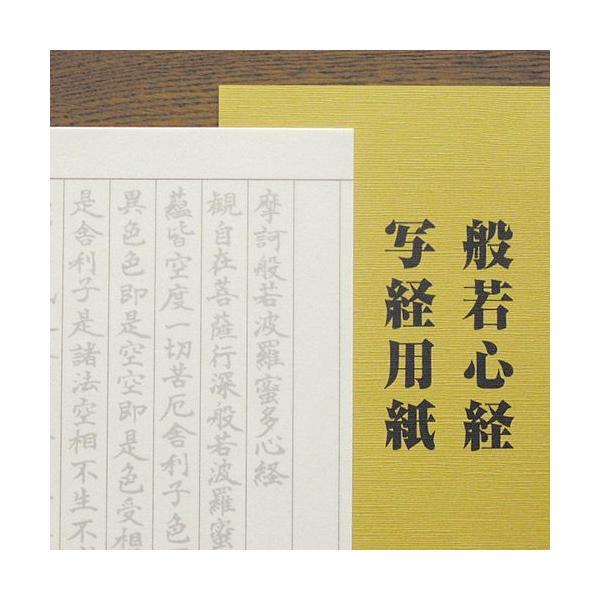 般若心経
写経用紙
摩訶般若波羅蜜多心経
観自在菩薩行深般若波羅蜜
蘊皆空度一切苦厄舎利子色
異色色即是空空即是色受想
是舎利子是諸法空相不生不